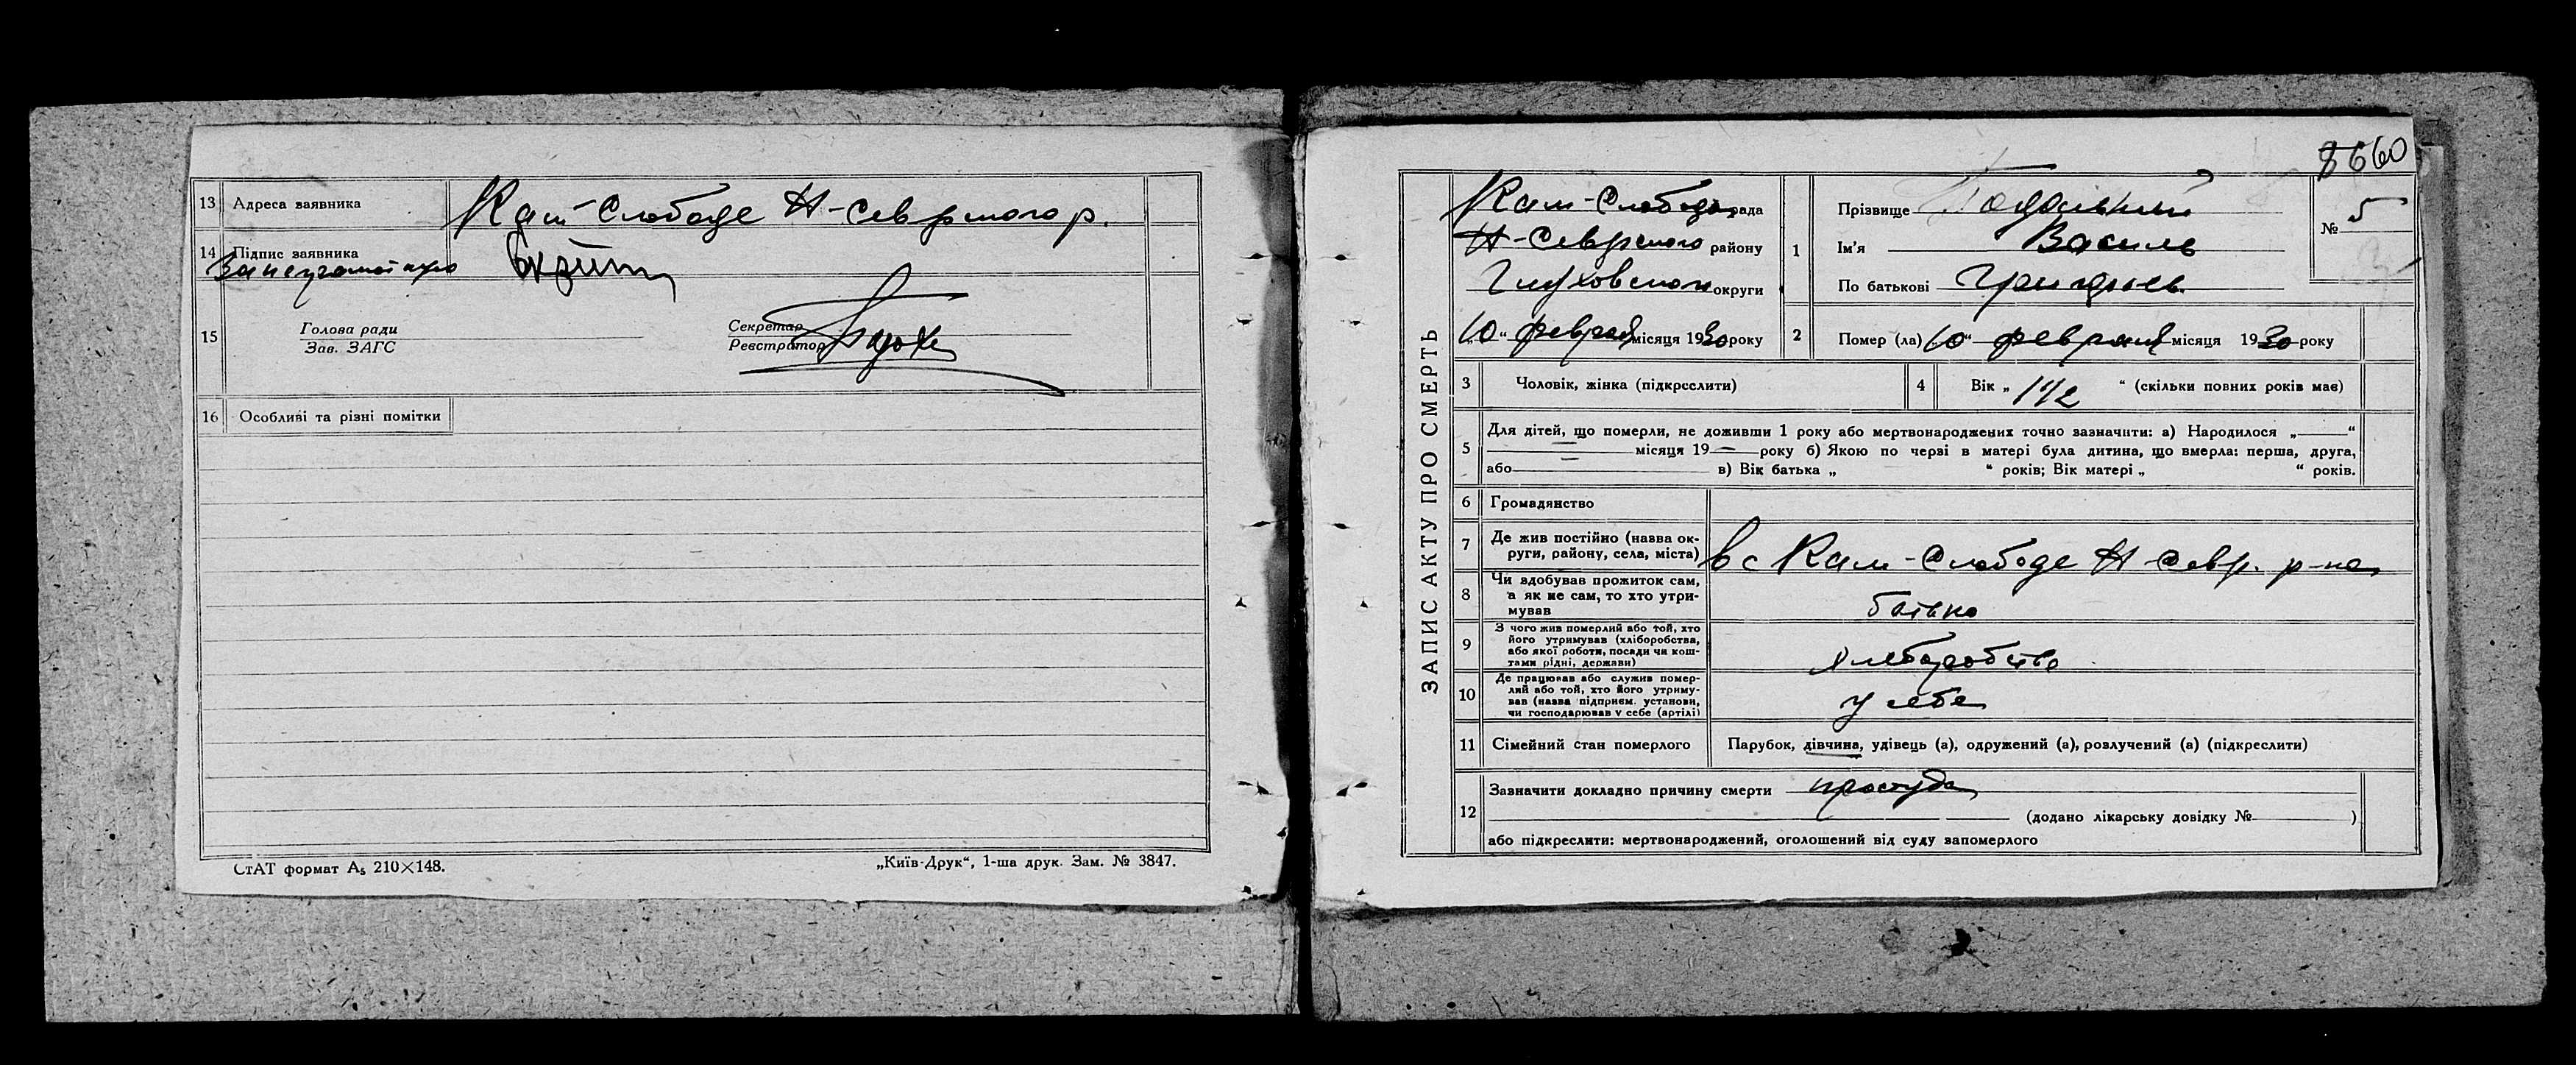 13 Адреса заявника Кам-Слободе Н-Северского р.
14 Підпис заявника
15 Голова ради
Зав. ЗАГС
Секретар
Реєстратор
16 Особливі та різні помітки
СтАТ формат А₅ 210×148.
„Київ-Друк“, 1-ша друк. Зам. № 3847.
8660
ЗАПИС АКТУ ПРО СМЕРТЬ
Кам-Слободск рада
Н-Северского району
Глуховской округи
„10“ февраля місяця 1930 року
1 Прізвище
Ім'я Василь
По батькові Григорьев.
№ 5
2 Помер (ла) „10“ февраля місяця 1930 року
3 Чоловік, жінка (підкреслити)
4 Вік „ 1 1/2 “ (скільки повних років має)
5 Для дітей, що померли, не доживши 1 року або мертвонароджених точно зазначити: а) Народилося „—“
— місяця 19 — року б) Якою по черві в матері була дитина, що вмерла: перша, друга,
або в) Вік батька „ “ років; Вік матері „ “ років.
6 Громадянство
7 Де жив постійно (назва ок-
руги, району, села, міста) в с Кам-Слободе Н-Севр. р-на
8 Чи здобував прожиток сам,
а як не сам, то хто утри-
мував батько
9 З чого жив померлий або той, хто
його утримував (хліборобства,
або якої роботи, посади чи кош-
тами рідні, держави) хлеборобство
10 Де працював або служив помер-
лий або той, хто його утриму-
вав (назва підприєм. установи,
чи господарював у себе (артілі) у себе
11 Сімейний стан померлого Парубок, дівчина, удівець (а), одружений (а), розлучений (а) (підкреслити)
12 Зазначити докладно причину смерти простуда
(додано лікарську довідку № )
або підкреслити: мертвонароджений, оголошений від суду запомерлого